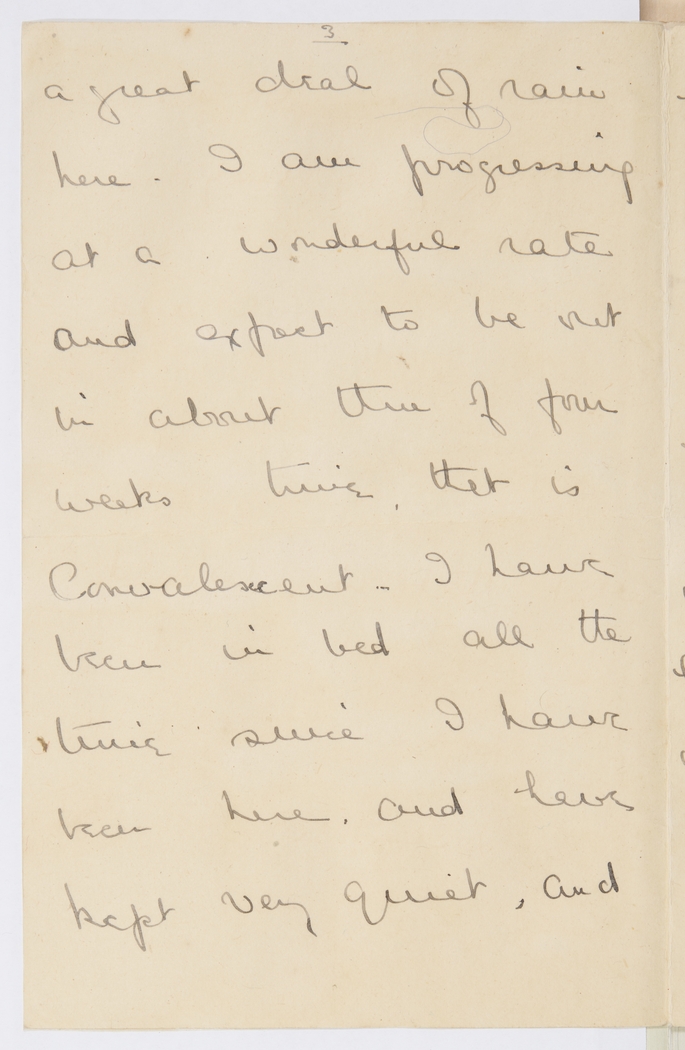 3
a great deal of rain
here. I am progressing
at a wonderful rate
and expect to be out
in about three of four
weeks time, that is
Convalescent - I have
been in bed all the
time since I have
been here, and have
kept very quiet, and